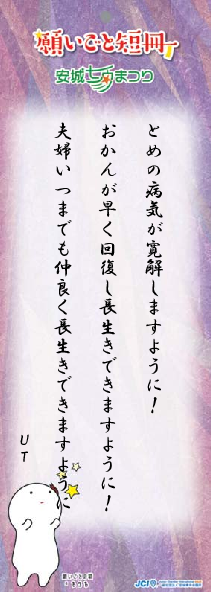 願いごと短冊
安城七夕まつり
とめの病気が寛解しますように！
おかんが早く回復し長生きできますように！
夫婦いつまでも仲良く長生きできますように
UT
願いごと短冊
JCI